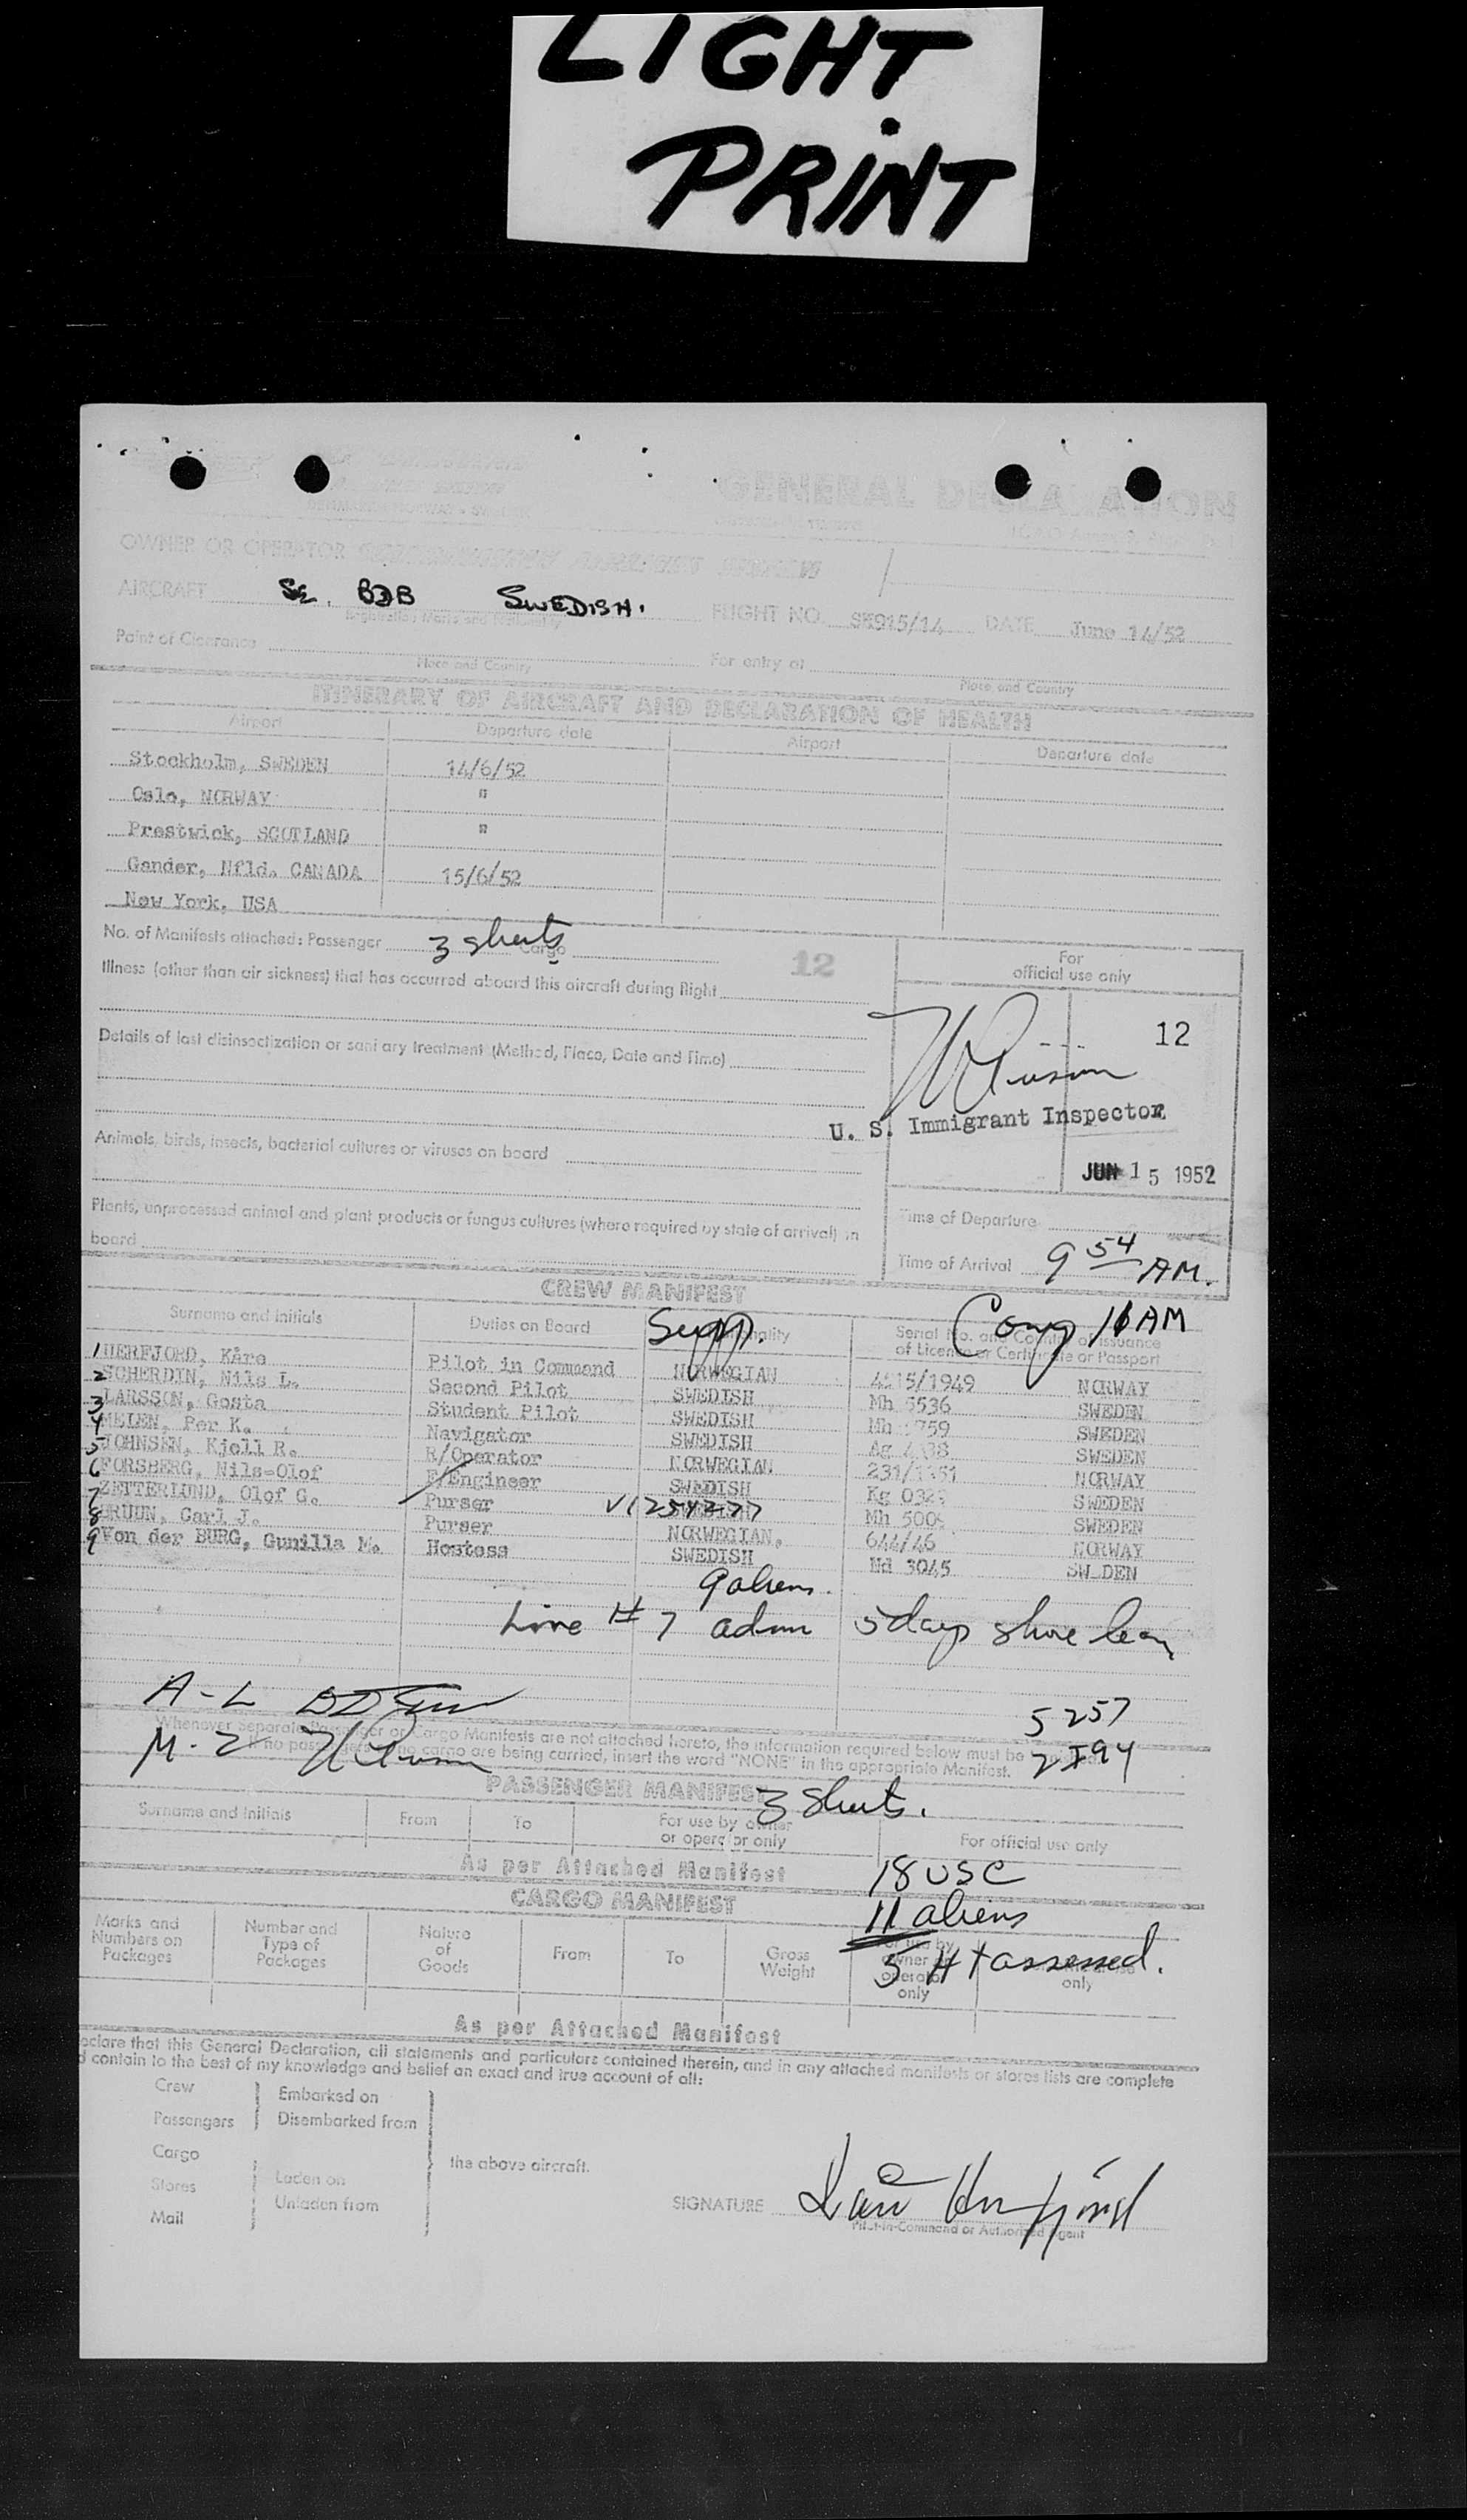 LIGHT
PRINT
GENERAL DECLARATION
OWNER OR OPERATOR
AIRCRAFT SE. BDB SWEDISH. FLIGHT NO. SK915/14 DATE June 14/52
Registration Marks and Nationality
Point of Clearance For entry at
Place and Country Place and Country
ITINERARY OF AIRCRAFT AND DECLARATION OF HEALTH
Airport Departure date Airport Departure date
Stockholm, SWEDEN 14/6/52
Oslo, NORWAY "
Prestwick, SCOTLAND "
Gander, Nfld. CANADA 15/6/52
New York, USA
No. of Manifests attached: Passenger 3 sheets Cargo
12
For
official use only
Illness (other than air sickness) that has occurred aboard this aircraft during flight
12
Details of last disinsectization or sanitary treatment (Method, Place, Date and Time)
U. S. Immigrant Inspector
Animals, birds, insects, bacterial cultures or viruses on board
JUN 15 1952
Plants, unprocessed animal and plant products or fungus cultures (where required by state of arrival) on
board
Time of Departure
Time of Arrival 9 54 AM.
CREW MANIFEST
Supp. AM
Surname and initials Duties on Board Nationality Serial No. and Country of Issuance
of License or Certificate or Passport
1 HERFJORD, Kåre Pilot in Command NORWEGIAN 4515/1949 NORWAY
2 SCHERDIN, Nils L. Second Pilot SWEDISH Mh 5536 SWEDEN
3 LARSSON, Gosta Student Pilot SWEDISH Mh 759 SWEDEN
4 MELEN, Per K. Navigator SWEDISH Ag SWEDEN
5 JOHNSEN, Kjell R. R/Operator NORWEGIAN 231/1951 NORWAY
6 FORSBERG, Nils-Olof F/Engineer SWEDISH Kg SWEDEN
7 ZETTERLUND, Olof G. Purser SWEDISH Mh SWEDEN
8 BRUUN, Carl J. Purser NORWEGIAN. 644/46 NORWAY
9 Von der BURG, Gunilla M. Hostess SWEDISH Md 3045 SWEDEN
9 aliens.
Line # 7 adm 5 days shore leave
A-L
5257
Whenever Separate Passenger or Cargo Manifests are not attached hereto, the information required below must be
M-Z
If no passengers or no cargo are being carried, insert the word "NONE" in the appropriate Manifest.
PASSENGER MANIFEST 3 sheets.
Surname and Initials From To For use by owner
or operator only For official use only
As per Attached Manifest
18 USC
CARGO MANIFEST
11 aliens
Marks and
Numbers on
Packages
Number and
Type of
Packages
Nature
of
Goods
From To Gross
Weight
For use by
owner or
operator
only
only
5 Ht assessed.
As per Attached Manifest
eclare that this General Declaration, all statements and particulars contained therein, and in any attached manifests or stores lists are complete
d contain to the best of my knowledge and belief an exact and true account of all:
Crew Embarked on
Passengers Disembarked from
Cargo the above aircraft.
Stores Laden on
Mail Unladen from
SIGNATURE Kåre Herfjord
Pilot-in-Command or Authorized Agent